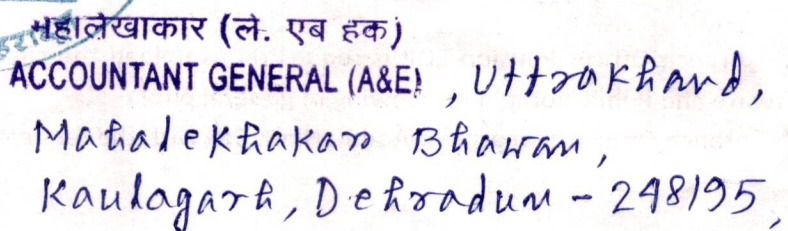 महालेखाकार (ले. एव हक)
ACCOUNTANT GENERAL (A&E), Uttrakhand,
Mahalekhakar Bhawan,
Kaulagarh, Dehradun - 248195,